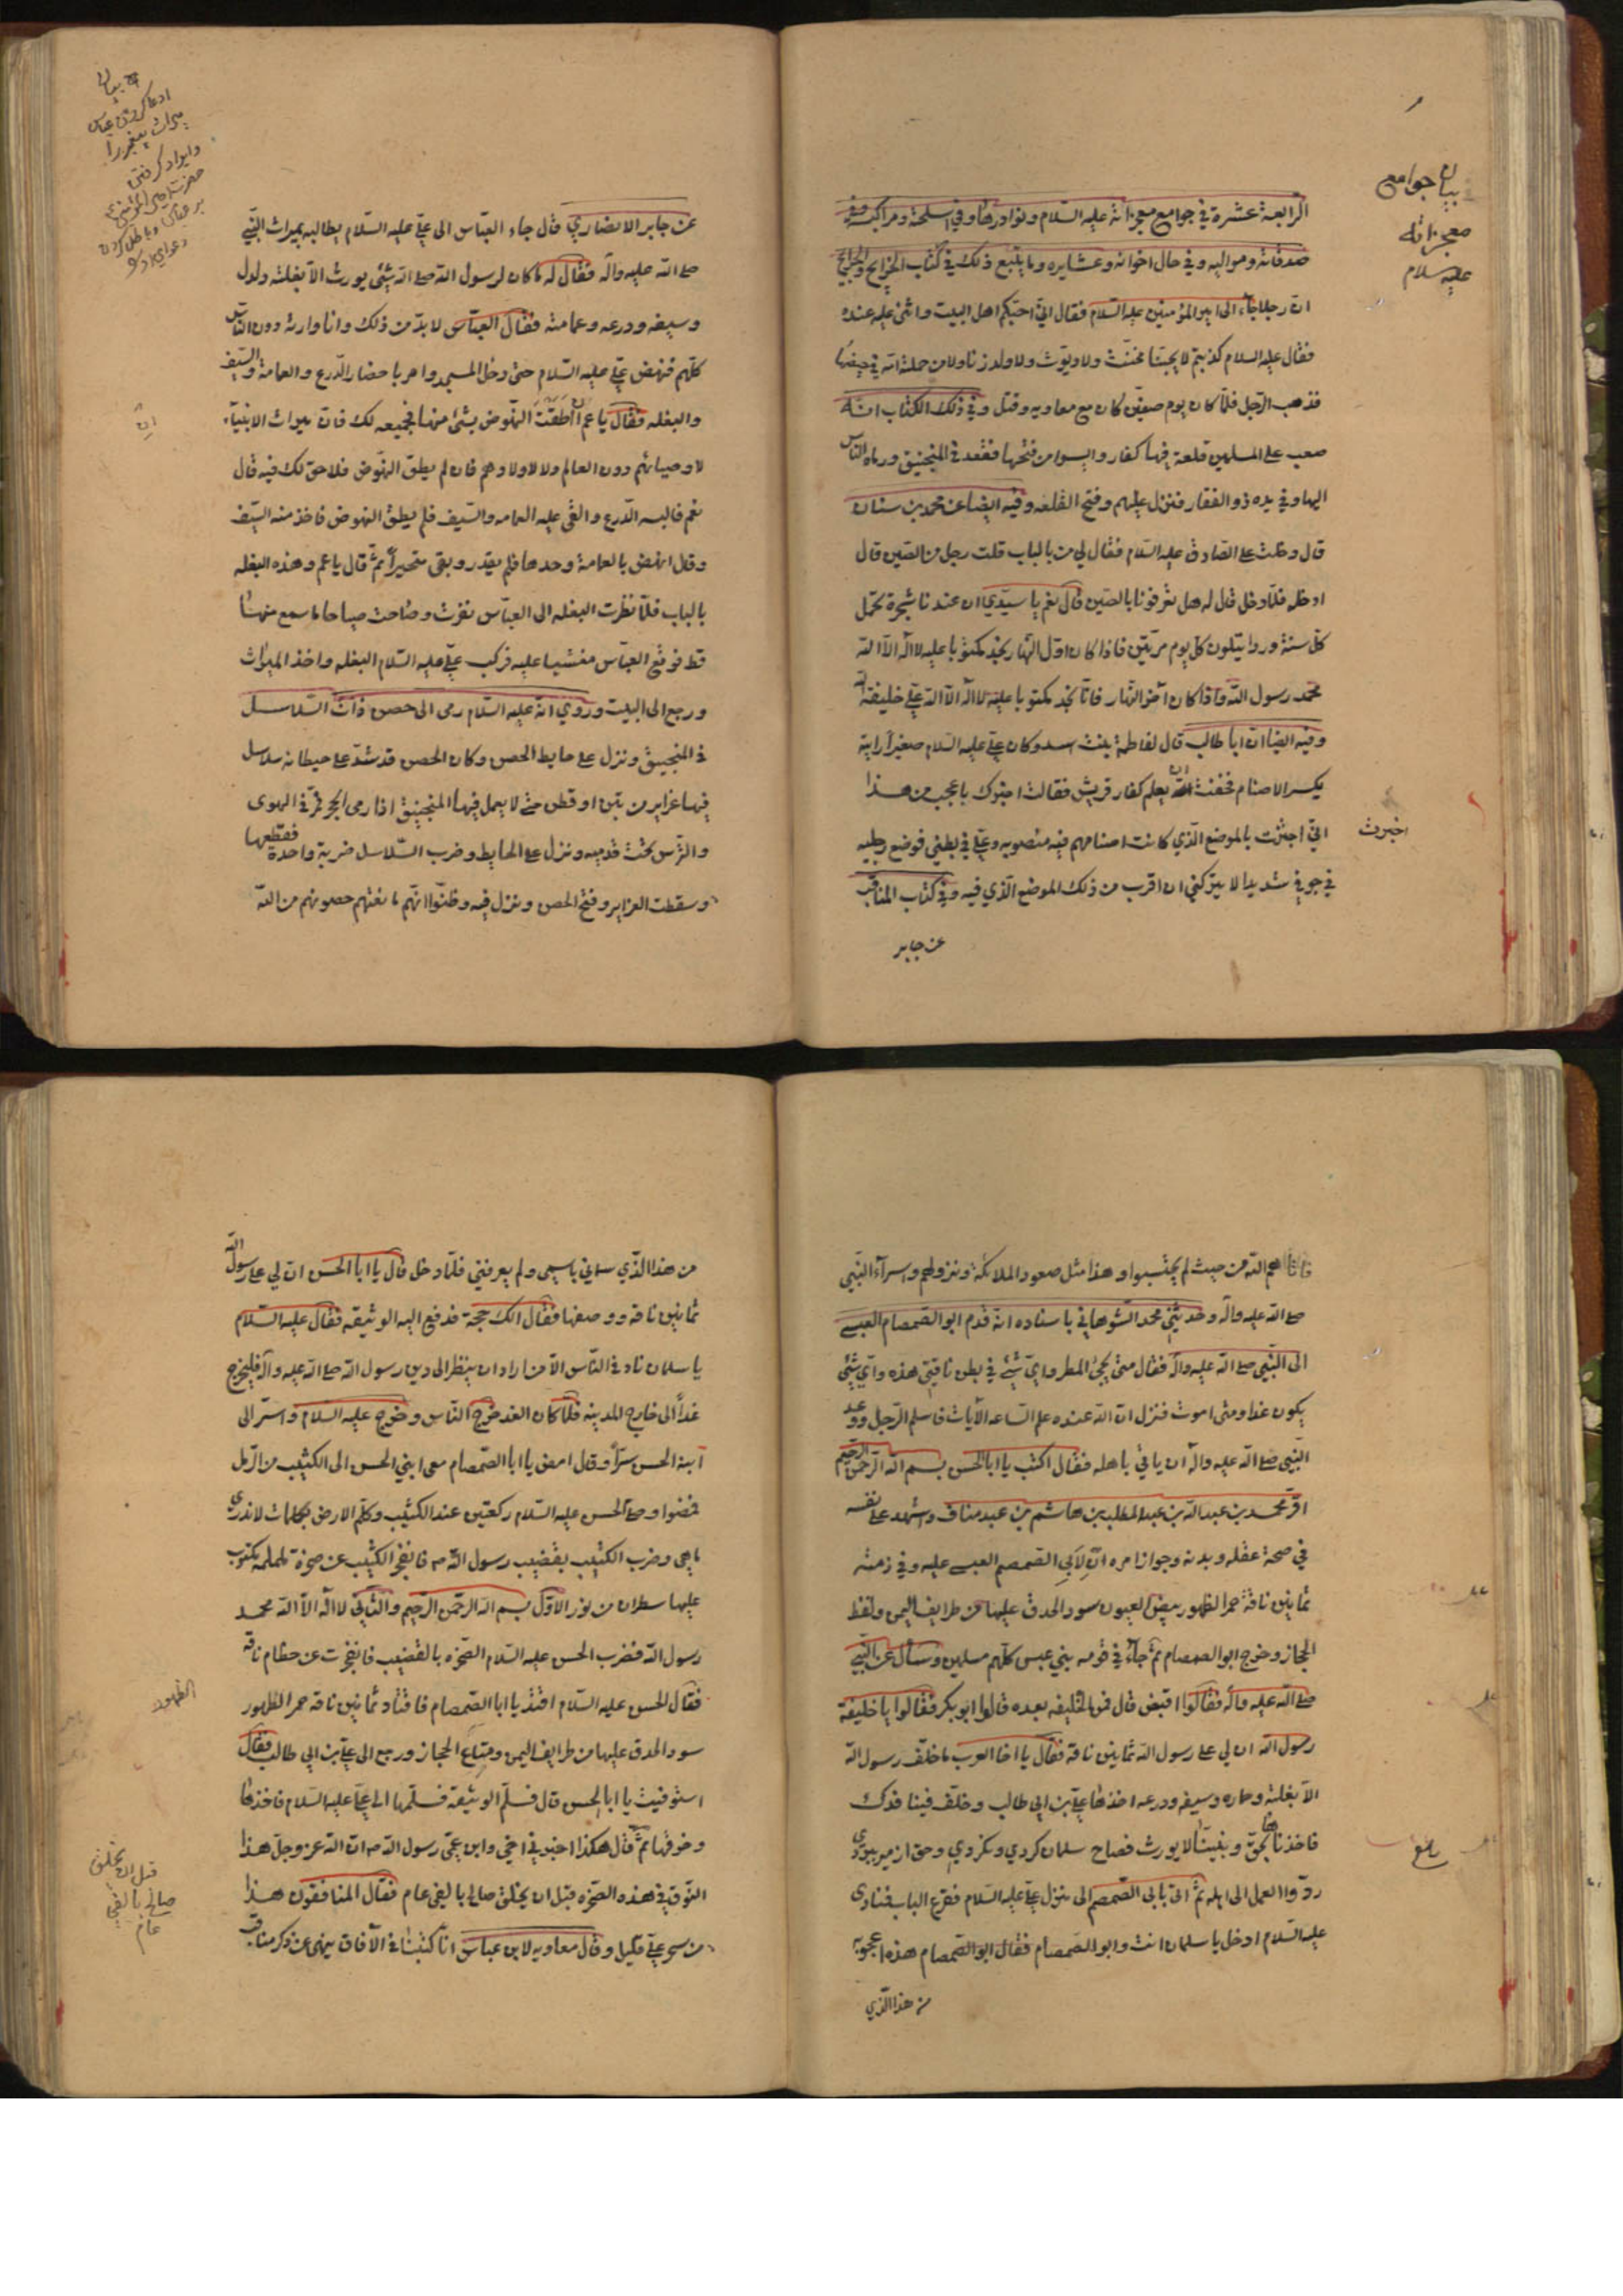 الرابعة عشرة في جوامع معجزاته عليه السلام ونوادرها وفي اسلحته ومراكبه وفي
صدقاته ومواليه وفي حال اخوانه وعشايره وما يتبع ذلك في كتاب الخرايج والجرايح
ان رجلا جاء الى امير المؤمنين عليه السلام فقال اني احبكم اهل البيت واثنى عليه عنده
فقال عليه السلام كذبتم لا يحبنا مخنث ولا ديوث ولا ولد زنا ولا من حملته امه في حيضها
فذهب الرجل فلما كان يوم صفين كان مع معاويه وقتل وفي ذلك الكتاب انه
صعب على المسلمين قلعة فيها كفار وايسوا من فتحها فقعد في المنجنيق ورماه الناس
اليها وفي يده ذو الفقار فنزل عليهم وفتح القلعه وفيه ايضا عن محمد بن سنان
قال دخلت على الصادق عليه السلام فقال لي من بالباب قلت رجل من الصين قال
ادخله فلما دخل قال له هل تعرفونا بالصين قال نعم يا سيدي ان عندنا شجرة تحمل
كل سنة وردا يتلون كل يوم مرتين فاذا كان اول النهار نجد مكتوبا عليه لا اله الا الله
محمد رسول الله واذا كان آخر النهار فانا نجد مكتوبا عليه لا اله الا الله علي خليفة الله
وفيه ايضا ان ابا طالب قال لفاطمة بنت اسد وكان علي عليه السلام صغيرا رايته
يكسر الاصنام فخفت ان يعلم كفار قريش فقالت اخبرك باعجب من هذا
اني اجتزت بالموضع الذي كانت اصنامهم فيه منصوبه وعلي في بطني فوضع رجليه
في جوفي شديدا لا يتركني ان اقرب من ذلك الموضع الذي فيه وفي كتاب المناقب
عن جابر
بيان جوامع
معجزاته
عليه سلام
اخبرت
عن جابر الانصاري قال جاء العباس الى علي عليه السلام يطالبه بميراث النبي
صلى الله عليه وآله فقال له ما كان لرسول الله صلى الله شئ يورث الا بغلته دلدل
وسيفه ودرعه وعمامته فقال العباس لا بد من ذلك وانا وارثه دون الناس
كلهم فنهض علي عليه السلام حتى دخل المسجد وامر باحضار الدرع والعمامة والسيف
والبغله فقال يا عم ان اطقت النهوض بشئ منها فجميعه لك فان ميراث الانبياء
لاوصيائهم دون العالم ولا لاولادهم فان لم يطق النهوض فلا حق لك فيه قال
نعم فالبسه الدرع والقى عليه العمامه والسيف فلم يطق النهوض فاخذ منه السيف
وقال انهض بالعمامة وحدها فلم يقدر وبقى متحيرا ثم قال يا عم وهذه البغله
بالباب فلما نظرت البغله الى العباس نفرت وصاحت صياحا ما سمع منها
قط فوقع العباس مغشيا عليه فركب علي عليه السلام البغله واخذ الميراث
ورجع الى البيت وروي انه عليه السلام رمى الى حصن ذات السلاسل
في المنجنيق ونزل على حايط الحصن وكان الحصن قد شد على حيطانه سلاسل
فيها غراير من تبن او قطن حتى لا يعمل فيها المنجنيق اذا رمى الحجر فمر في الهوى
والترس تحت قدميه ونزل على الحايط وضرب السلاسل ضربة واحدة فقطعها
وسقطت الغراير وفتح الحصن ونزل فيه وظنوا انهم مانعتهم حصونهم من الله
بيان
ادعا كردن عباس
ميراث پيغمبر را
فاتاهم الله من حيث لم يحتسبوا وهذا مثل صعود الملائكة ونزولهم واسرآء النبي
صلى الله عليه واله وحدثني محمد الشوهاني باسناده انه قدم ابو الصمصام العبسي
الى النبي صلى الله عليه واله فقال متى يجئ المطر واي شئ في بطن ناقتي هذه واي شئ
يكون غدا ومتى اموت فنزل ان الله عنده علم الساعه الآيات فاسلم الرجل ووعد
النبي صلى الله عليه واله ان ياتي باهله فقال اكتب يا ابا الحسن بسم الله الرحمن الرحيم
اقر محمد بن عبدالله بن عبد المطلب بن هاشم بن عبد مناف واشهد على نفسه
في صحة عقله وبدنه وجواز امره ان لابي الصمصم العبسي عليه وفي ذمته
ثمانين ناقة حمر الظهور بيض العيون سود الحدق عليها من طرايف اليمن ونقط
الحجاز وخرج ابو الصمصام ثم جاء في قومه بني عبس كلهم مسلمين وسأل عن النبي
صلى الله عليه واله فقالوا اقبض قال فمن الخليفه بعده قالوا ابو بكر فقالوا يا خليفة
رسول الله ان لي على رسول الله ثمانين ناقة فقال يا اخا العرب ما خلف رسول الله
الا بغلته وحماره وسيفه ودرعه اخذها علي بن ابي طالب وخلف فينا فدك
فاخذناها بحق ونبينا لا يورث فصاح سلمان كردي ونكردي وحق از مير ببردي
ردوا العمل الى اهله ثم اتى بابى الصمصم الى منزل علي عليه السلام فقرع الباب فنادى
عليه السلام ادخل يا سلمان انت وابو الصمصام فقال ابو الصمصام هذه اعجوبه
من هذا الذي
من هذا الذي سماني باسمي ولم يعرفني فلما دخل قال يا ابا الحسن ان لي على رسول الله
ثمانين ناقة ووصفها فقال الك حجة فدفع اليه الوثيقه فقال عليه السلام
يا سلمان ناد في الناس الا من اراد ان ينظر الى دين رسول الله صلى الله عليه وآله فليخرج
غدا الى خارج المدينه فلما كان الغد خرج الناس وخرج عليه السلام واسر الى
ابنه الحسن سرا وقال امض يا ابا الصمصام مع ابني الحسن الى الكثيب من الرمل
فمضوا وصلى الحسن عليه السلام ركعتين عند الكثيب وكلم الارض بكلمات لا ندري
ما هي وضرب الكثيب بقضيب رسول الله ص فانفجر الكثيب عن صخرة ململمه مكتوب
عليها سطران من نور الاول بسم الله الرحمن الرحيم والثاني لا اله الا الله محمد
رسول الله فضرب الحسن عليه السلام الصخره بالقضيب فانفجرت عن خطام ناقة
فقال الحسن عليه السلام اقتد يا ابا الصمصام فاقتاد ثمانين ناقة حمر الظهور
سود الحدق عليها من طرايف اليمن ومتاع الحجاز ورجع الى علي بن ابي طالب فقال
استوفيت يا ابا الحسن قال فسلم الوثيقة فسلمها الى علي عليه السلام فاخذها
وخرقها ثم قال هكذا اخبرني اخي وابن عمي رسول الله ص ان الله عز وجل هذا
النوق في هذه الصخره قبل ان يخلق صالح بالفي عام فقال المنافقون هذا
من سحر علي قليل وقال معاويه لابن عباس انا كتبنا في الآفاق ينهى عن ذكر مناقب
الظهور
قبل ان يخلق
صالح بالفي
عام